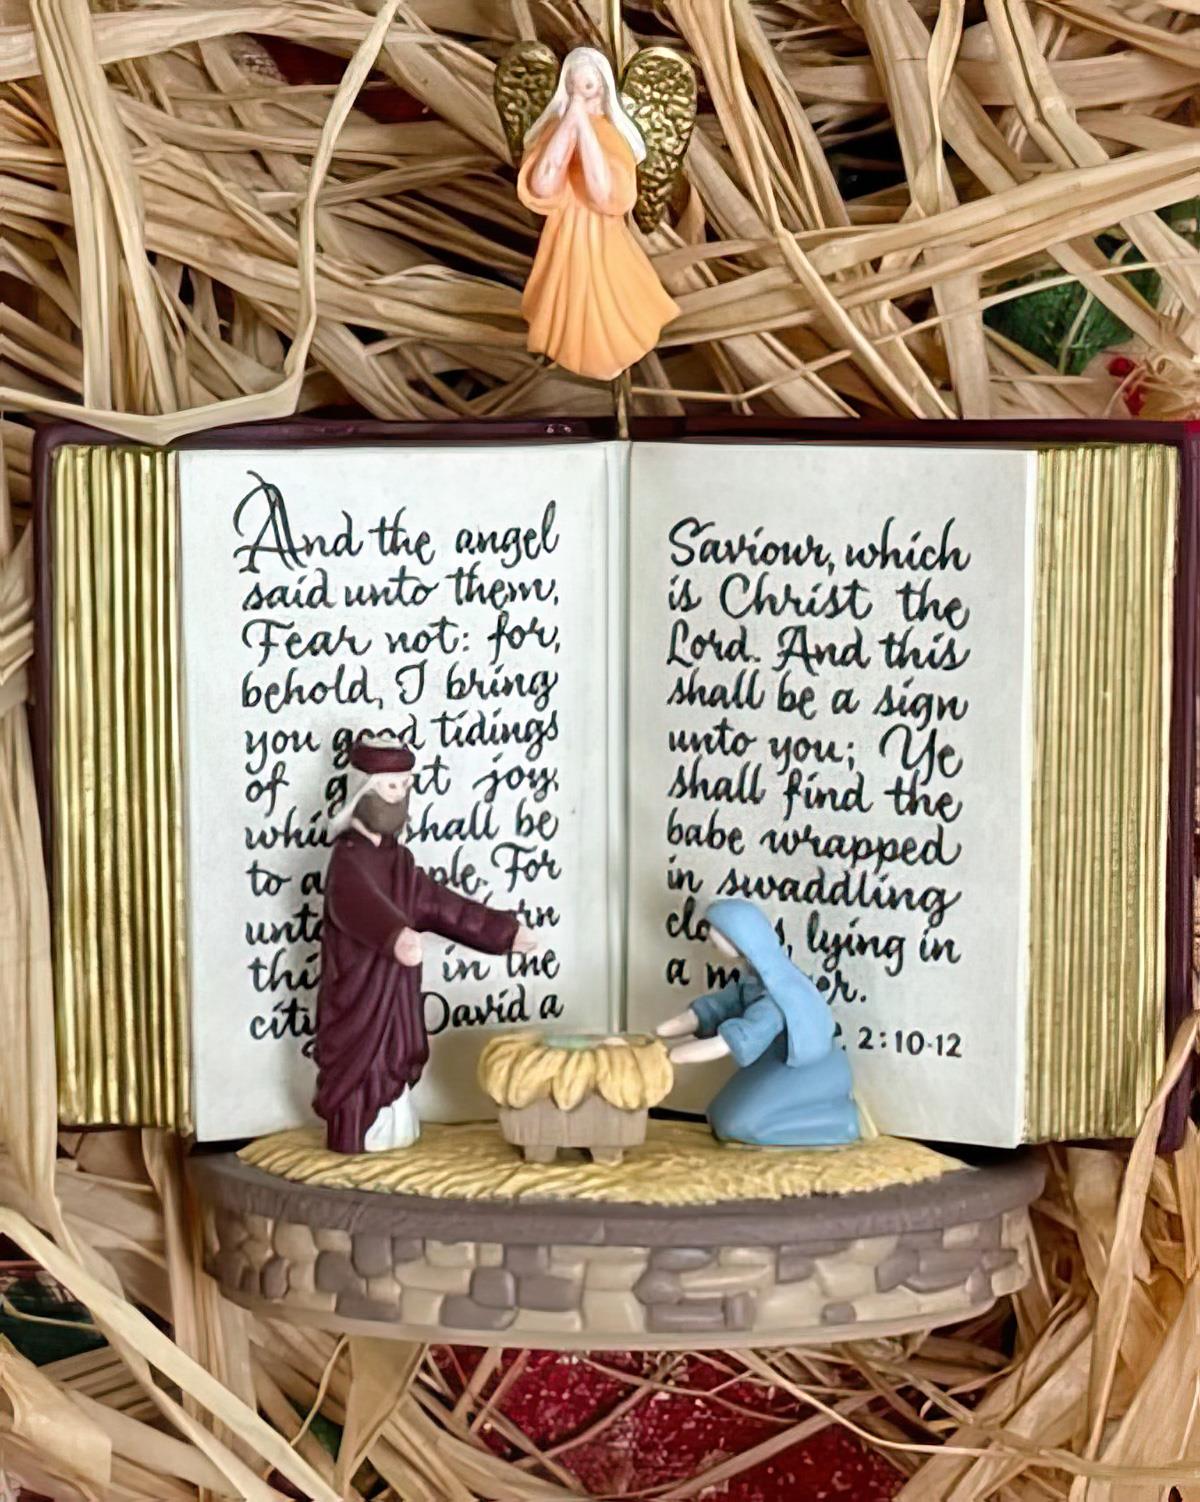 And the angel
said unto them,
Fear not: for,
behold, I bring
you good tidings
of great joy,
which shall be
to a ple. For
unto rn
this in the
city David a
Saviour, which
is Christ the
Lord. And this
shall be a sign
unto you; Ye
shall find the
babe wrapped
in swaddling
clo s, lying in
a manger.
2:10-12